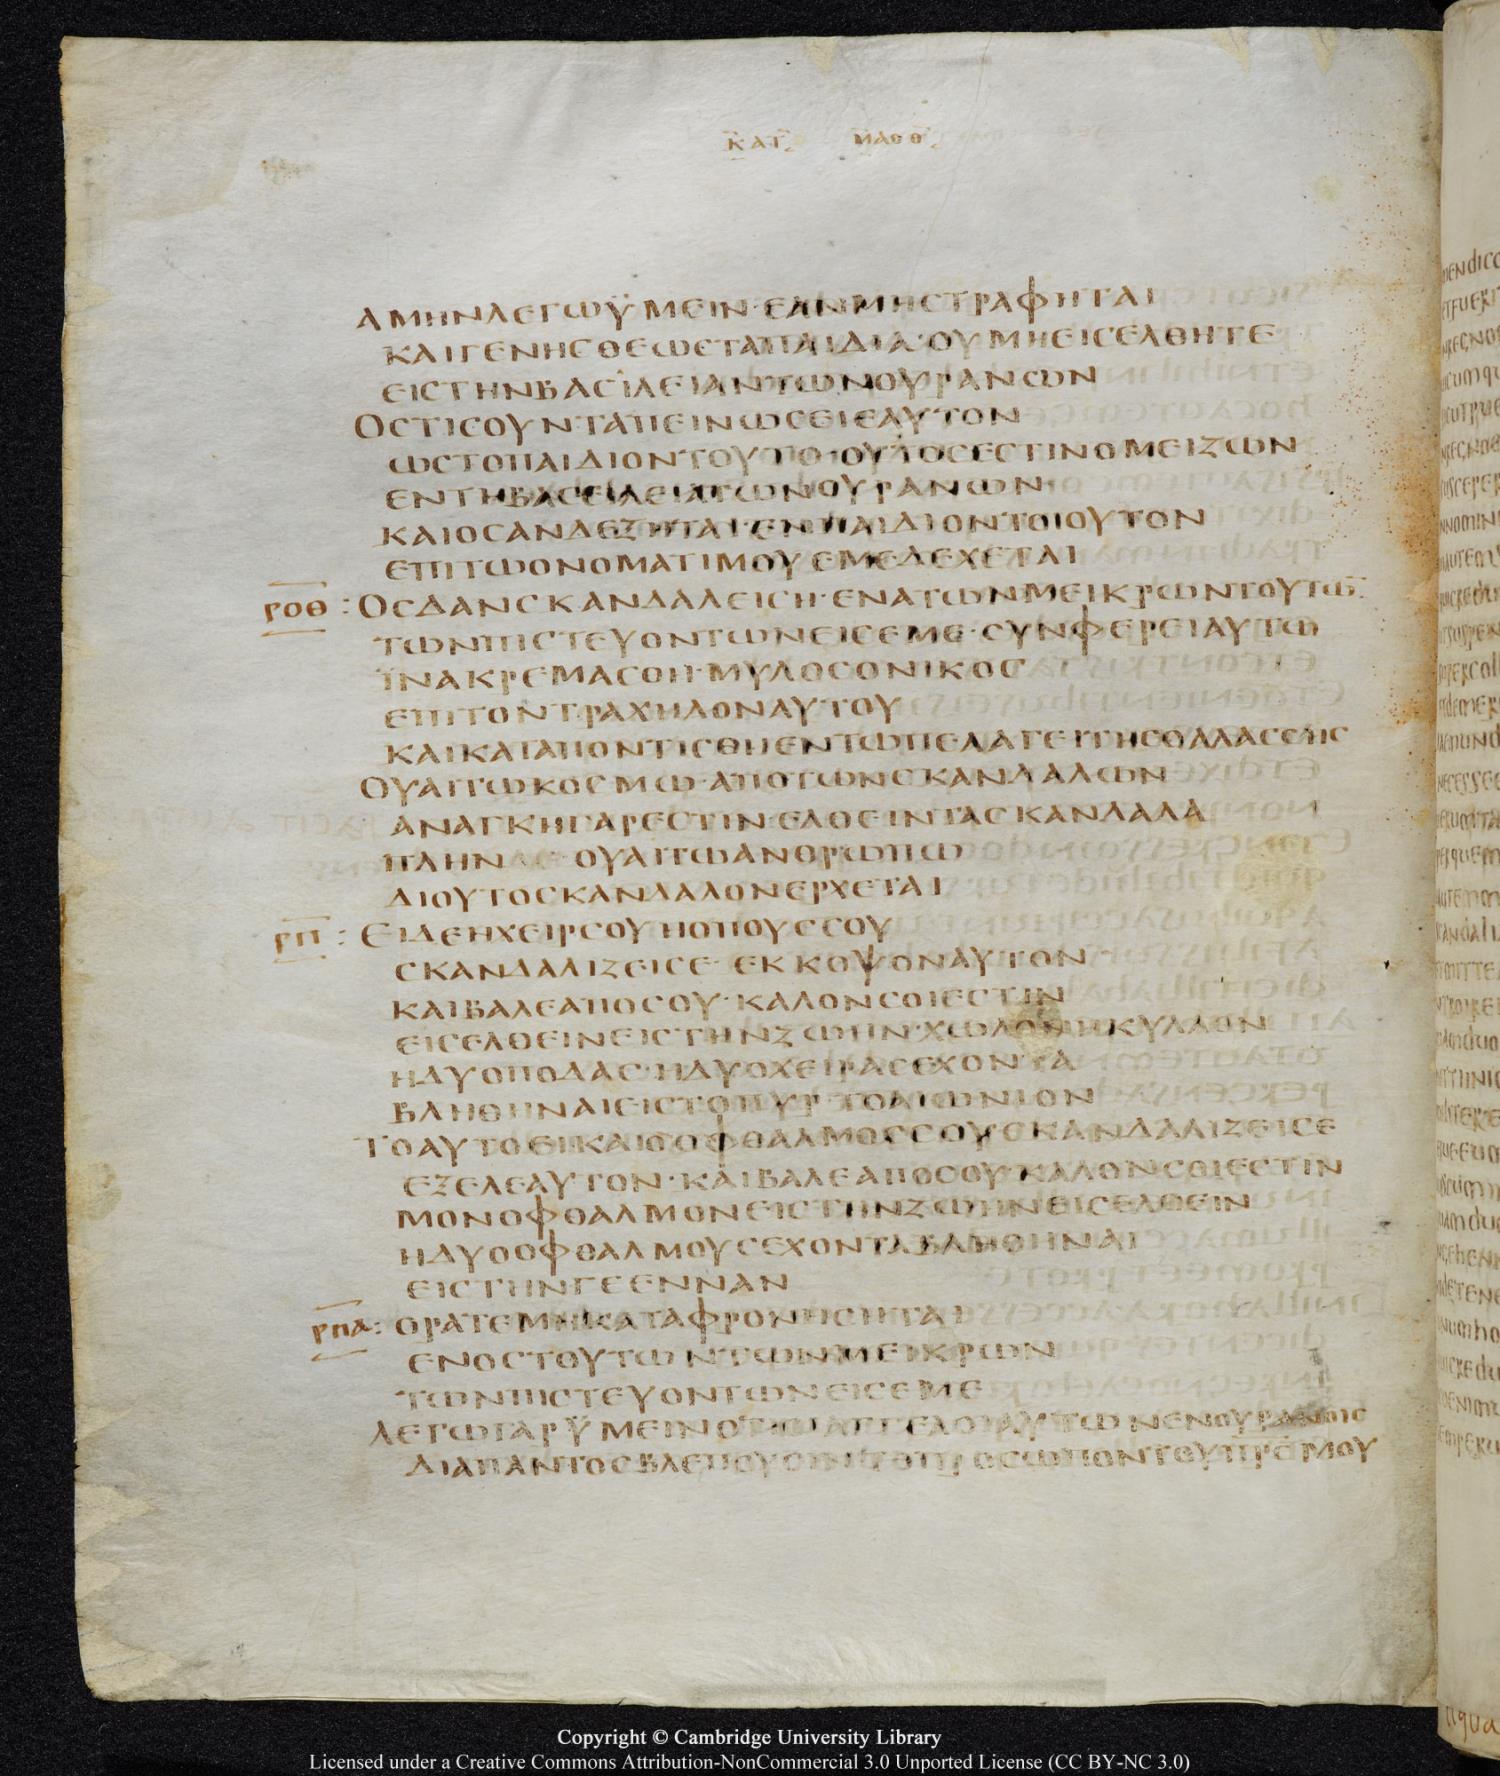 ΚΑΤ ΜΑΘΘ
ΑΜΗΝΛΕΓΩΫΜΕΙΝ·ΕΑΝΜΗСΤΡΑΦΗΤΑΙ
ΚΑΙΓΕΝΗСΘΕΩСΤΑΠΑΙΔΙΑ·ΟΥΜΗΕΙСΕΛΘΗΤΕ
ΕΙСΤΗΝΒΑСΙΛΕΙΑΝΤΩΝΟΥΡΑΝΩΝ
ΟСΤΙСΟΥΝΤΑΠΕΙΝΩСΕΙΕΑΥΤΟΝ
ΩСΤΟΠΑΙΔΙΟΝΤΟΥΤΟ·ΟΥΤΟСΕСΤΙΝΟΜΕΙΖΩΝ
ΕΝΤΗΒΑСΕΙΛΕΙΑΤΩΝΟΥΡΑΝΩΝ·
ΚΑΙΟСΑΝΔΕΞΗΤΑΙ·ΕΝΠΑΙΔΙΟΝΤΟΙΟΥΤΟΝ
ΕΠΙΤΩΟΝΟΜΑΤΙΜΟΥΕΜΕΔΕΧΕΤΑΙ
ΡΟΘ : ΟСΔΑΝСΚΑΝΔΑΛΕΙСΗ·ΕΝΑΤΩΝΜΕΙΚΡΩΝΤΟΥΤΩ
ΤΩΝΠΙСΤΕΥΟΝΤΩΝΕΙСΕΜΕ·СΥΝΦΕΡΕΙΑΥΤΩ
ΪΝΑΚΡΕΜΑСΘΗ·ΜΥΛΟСΟΝΙΚΟС
ΕΠΙΤΟΝΤΡΑΧΗΛΟΝΑΥΤΟΥ
ΚΑΙΚΑΤΑΠΟΝΤΙСΘΗΕΝΤΩΠΕΛΑΓΕΙΤΗСΘΑΛΑССΗС
ΟΥΑΙΤΩΚΟСΜΩ·ΑΠΟΤΩΝСΚΑΝΔΑΛΩΝ
ΑΝΑΓΚΗΓΑΡΕСΤΙΝ·ΕΛΘΕΙΝΤΑСΚΑΝΔΑΛΑ
ΠΛΗΝΔΕ ΟΥΑΙΤΩΑΝΘΡΩΠΩ
ΔΙΟΥΤΟСΚΑΝΔΑΛΟΝΕΡΧΕΤΑΙ
ΡΠ : ΕΙΔΕΗΧΕΙΡСΟΥΗΟΠΟΥССΟΥ
СΚΑΝΔΑΛΙΖΕΙСΕ· ΕΚΚΟΨΟΝΑΥΤΟΝ
ΚΑΙΒΑΛΕΑΠΟСΟΥ·ΚΑΛΟΝСΟΙΕСΤΙΝ
ΕΙСΕΛΘΕΙΝΕΙСΤΗΝΖΩΗΝ·ΧΩΛΟΝΗΚΥΛΛΟΝ
ΗΔΥΟΠΟΔΑС·ΗΔΥΟΧΕΙΡΑСΕΧΟΝΤΑ
ΒΛΗΘΗΝΑΙΕΙСΤΟΠΥΡ ΤΟΑΙΩΝΙΟΝ
ΤΟΑΥΤΟΕΙΚΑΙΟΟΦΘΑΛΜΟССΟΥСΚΑΝΔΑΛΙΖΕΙСΕ
ΕΞΕΛΕΑΥΤΟΝ·ΚΑΙΒΑΛΕΑΠΟСΟΥ·ΚΑΛΟΝСΟΙΕСΤΙΝ
ΜΟΝΟΦΘΑΛΜΟΝΕΙСΤΗΝΖΩΗΝΕΙСΕΛΘΕΙΝ
ΗΔΥΟΟΦΘΑΛΜΟΥСΕΧΟΝΤΑΒΛΗΘΗΝΑΙ
ΕΙСΤΗΝΓΕΕΝΝΑΝ
ΡΠΑ : ΟΡΑΤΕΜΗΚΑΤΑΦΡΟΝΗСΗΤΑΙ
ΕΝΟСΤΟΥΤΩΝΤΩΝΜΕΙΚΡΩΝ
ΤΩΝΠΙСΤΕΥΟΝΤΩΝΕΙСΕΜΕ
ΛΕΓΩΓΑΡΫΜΕΙΝΟΤΙΟΙΑΓΓΕΛΟΙΑΥΤΩΝΕΝΟΥΡΑΝΟΙС
ΔΙΑΠΑΝΤΟСΒΛΕΠΟΥСΙΝΤΟΠΡΟСΩΠΟΝΤΟΥΠΡΣΜΟΥ
Copyright © Cambridge University Library
Licensed under a Creative Commons Attribution-NonCommercial 3.0 Unported License (CC BY-NC 3.0)